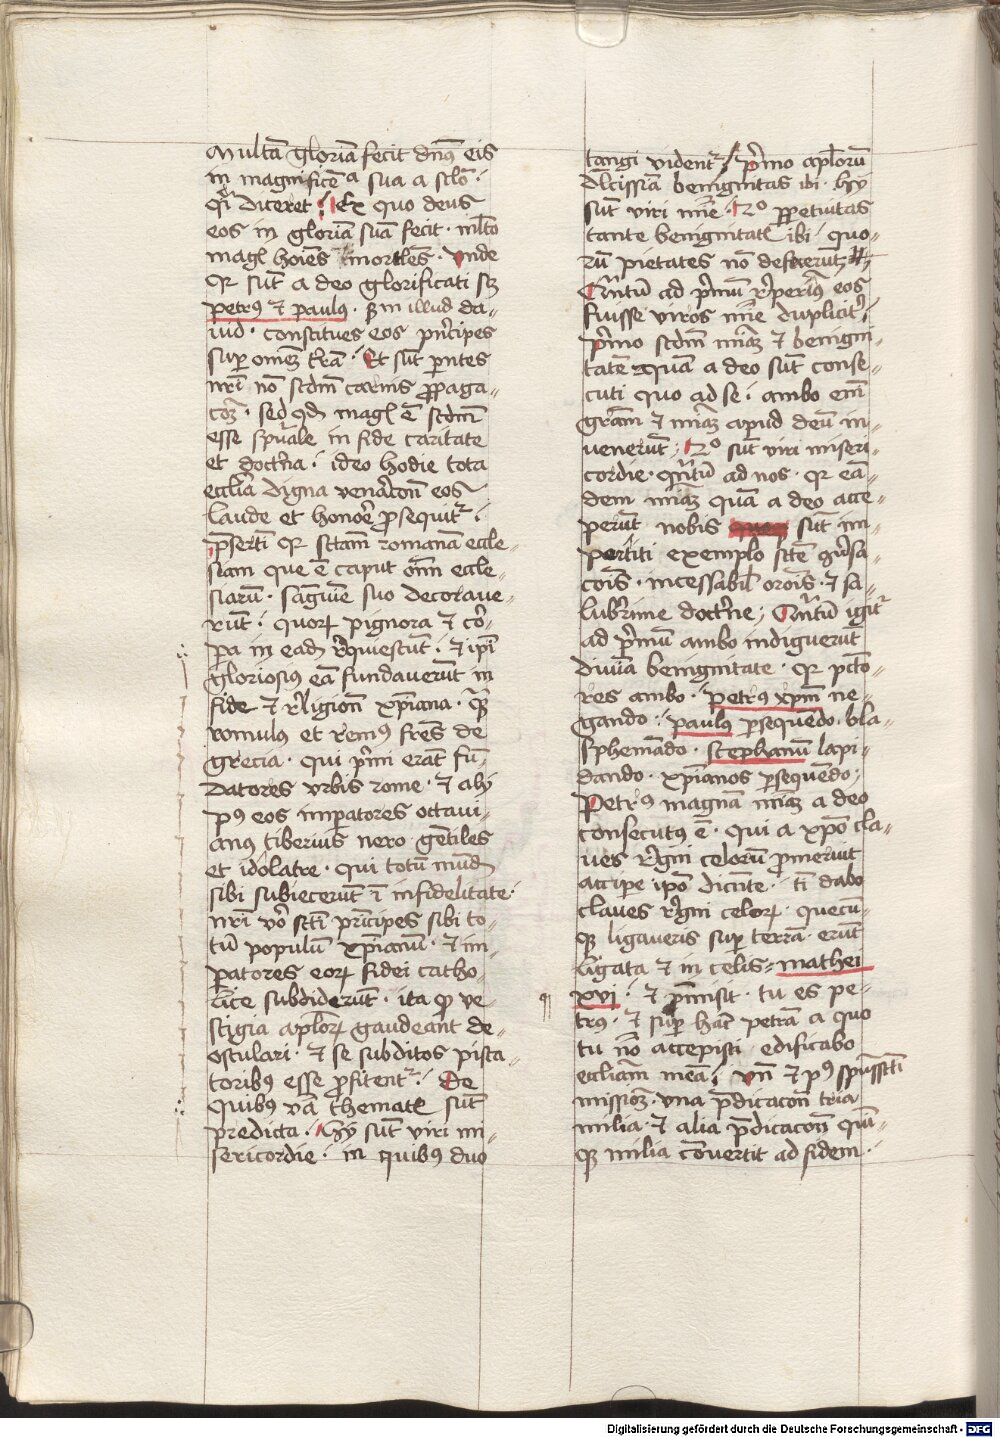 Multā gloriā fecit dns eis
in magnificēa sua a sclo ·
qr diceret · Ex quo deus
eos in gloriā suā fecit · mlto
magl hoīes īmortles · vnde
qr sūt a deo glorificati sz
petrus et paulus · Sm illud da-
uid · constitues eos prīcipes
super omēz trā · Et sūt pārtes
nrī nō scdm carnis propaga-
cōz · sed qd magl ē scdm
esse spūale in fide caritate
et doctrīa · ideo hodie tota
ecclīa digna venācōn eos
laude et honoē prosequitur ·
presertī qr sctam romanā eccle-
siam que ē caput oīm eccle-
siarū · sāguīe suo decoraue-
rūt · quorum pignora et cor-
pa in ead requiescūt · et ipī
gloriosius eā fundauerūt in
fide et religion xpīana · qz
romulus et remus fres de
grecia · qui prīmi erāt fū-
datores vrbis rome · et alij
post eos imperatores octaui-
anus tiberius nero gētiles
et idolatre · qui totū mūd
sibi subiecerūt ī infidelitate ·
nrī vo sctī prīcipes sibi to-
tū populū xpīanū · et im-
peratores eorum fidei catho-
lice subdiderūt · ita quod ve-
stigia aplorum gaudeant de-
osculari · et se subditos pisca-
toribus esse profitentur · De
quibus vā themate sūt
predicta · Hij sūt viri mi-
sericordie · in quibus duo
tangi videntur · prīmo aplorū
dulcissīā benignitas ibi · hij
sūt viri mīe · 2o perpetuitas
tante benignitatl ibi quo-
rū pietates nō defuerūt
Quātū ad prīmū reperīus eos
fuisse viros mīe dupliciter ·
prīmo scdm mīaz et benigni-
tatē quā a deo sūt conse-
cuti quo ad se · ambo enī
grām et mīaz apud deū in-
uenerūt · 2o sūt viri miseri-
cordie · quātū ad nos · qr eā-
dem mīaz quā a deo acce-
perūt nobis sūt im-
pertiti exemplo scte
cōis · incessabil orōis · et sa-
luberrime doctrīe · Quātū igitur
ad prīmū ambo indiguerūt
diuīa benignitate · qr pcto-
res ambo · petrus xpm ne-
gando · paulus persequēdo · bla-
sphemādo · stephanū lapi-
dando · xpīanos persequēdo ·
Petrus magnā mīaz a deo
consecutus ē · qui a xpo cla-
ues regni celorū promeruit
accipe ipo dicēte · tī dabo
claues regni celorum · quecū-
qz ligaueris super terrā · erūt
ligata et in celis · mathei
xvi · et promisit · tu es pe-
trus · et super hāc petrā a quo
tu nō accepisti edificabo
eccliam meā · vn et post spūsscti
missiōz · vna predicacōn tria
milia · et alia predicacōn quī-
qz milia cōuertit ad fidem ·
Digitalisierung gefördert durch die Deutsche Forschungsgemeinschaft - DFG